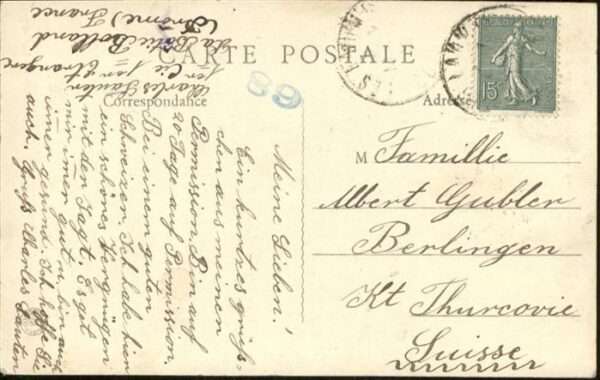 CARTE POSTALE
Correspondance
Adresse
15
69
Meine Lieben!
Ein kurtzes grüß-
chen aus meinen
Permission. Bin auf
20 Tage auf Permission.
Bei einem guten
Schweizer. Ich habe hier
ein schönes Vergnügen
mit der Jagt. Es get
mir imer gut u. bin auch
imer gesund. Ich hoffe Sie
auch. Gruß Charles Sauter
Charles Sauter
1er Cie 1er Etrangère
La Bolland
(Drome) France
M Famillie
Albert Gubler
Berlingen
Kt Thurcovie
Suisse